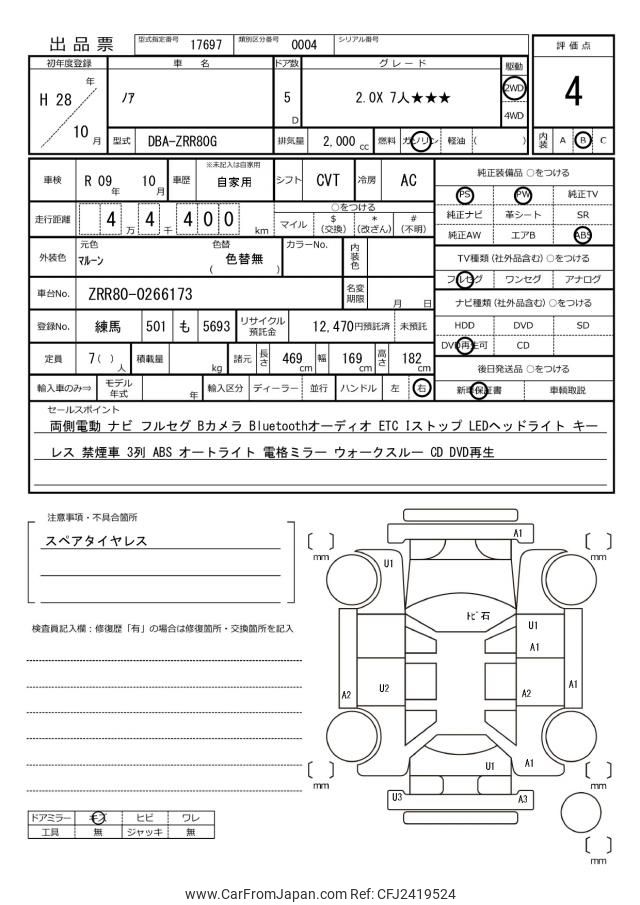 出品票 型式指定番号 17697 類別区分番号 0004 シリアル番号
評価点
4
初年度登録 車名 ドア数 グレード 駆動
H 28 年 ノア 5 D 2.0X 7人★★★ 2WD
10 月 4WD
型式 DBA-ZRR80G 排気量 2,000 cc 燃料 ガソリン 軽油 ( ) 内装 A B C
車検 R 09 年 10 月 車歴 ※未記入は自家用 自家用 シフト CVT 冷房 AC
走行距離 4 万 4 千 4 0 0 km ○をつける
マイル $ (交換) * (改ざん) # (不明)
外装色 元色 マルーン 色替 ( 色替無 ) カラーNo. 内装色
車台No. ZRR80-0266173 名変期限 月 日
登録No. 練馬 501 も 5693 リサイクル預託金 12,470円預託済 未預託
定員 7 ( ) 人 積載量 kg 諸元 長さ 469 cm 幅 169 cm 高さ 182 cm
輸入車のみ⇒ モデル年式 年 輸入区分 ディーラー 並行 ハンドル 左 右
純正装備品 ○をつける
PS PW 純正TV
純正ナビ 革シート SR
純正AW エアB ABS
TV種類 (社外品含む) ○をつける
フルセグ ワンセグ アナログ
ナビ種類 (社外品含む) ○をつける
HDD DVD SD
DVD再生可 CD
後日発送品 ○をつける
新車保証書 車輌取説
セールスポイント
両側電動 ナビ フルセグ Bカメラ Bluetoothオーディオ ETC Iストップ LEDヘッドライト キー
レス 禁煙車 3列 ABS オートライト 電格ミラー ウォークスルー CD DVD再生
注意事項・不具合箇所
スペアタイヤレス
検査員記入欄:修復歴「有」の場合は修復箇所・交換箇所を記入
ドアミラー キズ ヒビ ワレ
工具 無 ジャッキ 無
A1
mm mm
U1
トビ石
U1
A1
A2 U2 A2 A1
U1 A1
mm mm
U3 A3
mm
www.CarFromJapan.com Ref: CFJ2419524